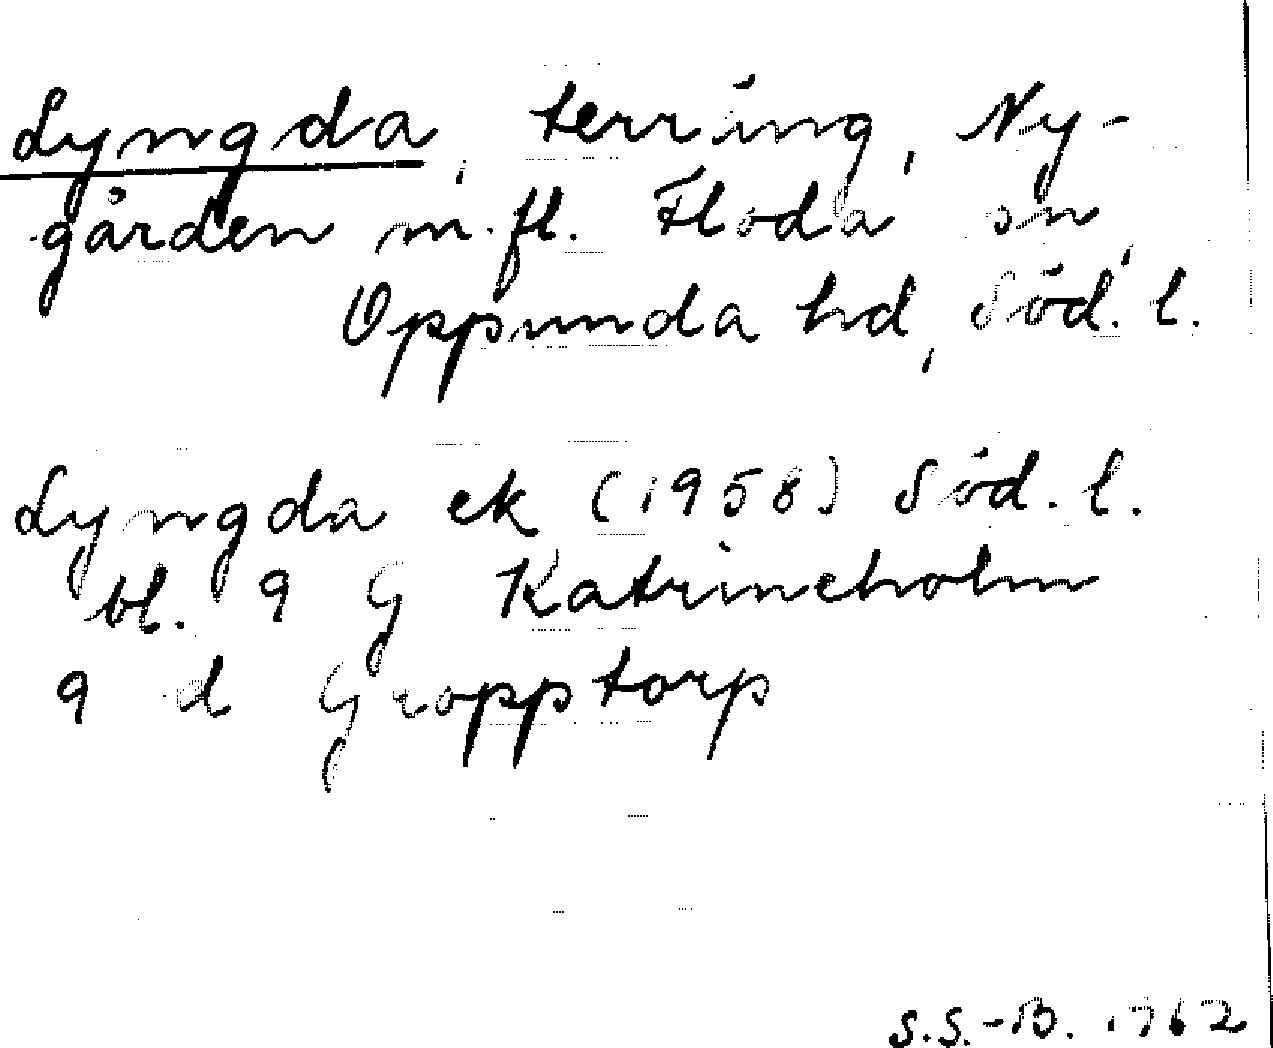 Lyngda, terräng, Ny-
gården m.fl. Floda sn,
Oppunda hd, Söd. l.
Lyngda ek (1958) Söd. l.
bl. 9 G Katrineholm
9 d Gropptorp
S.S.-B. 1962